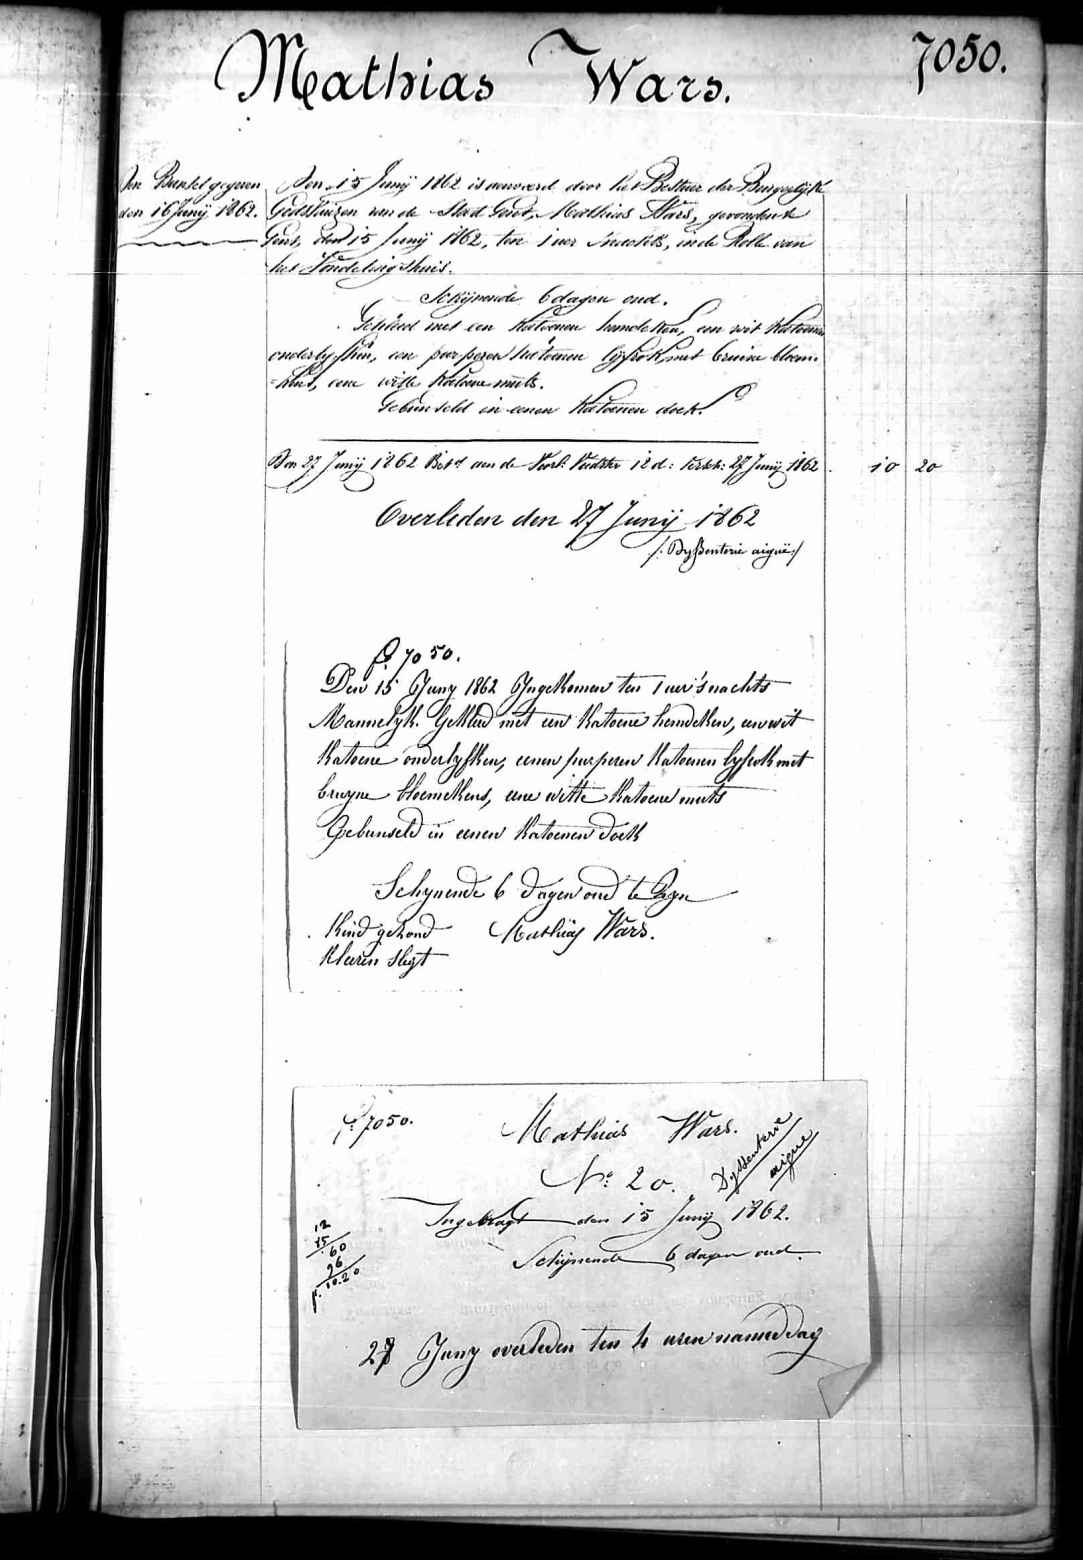 Mathias Wars.
7050.
den 16 Junij 1862.
Den 15 Junij 1862 is aenveerd door het Bestuer der Burgerlijk
Godshuizen van de Stad Gent, Mathias Wars, gevonden te
Gent, den 15 Junij 1862, ten 1 uer s'nachts, in de Rolle van
het Vondelingshuis.
Schijnende 6 dagen oud.
Gekleed met een katoenen hemdeken, een wit katoenen
onderlyfken, een purperen katoenen lyfrok met bruine bloem-
=kens, eene witte katoene muts.
Gebunseld in eenen katoenen doek.
Den 27 Junij 1862 Bet.d aen de 12 d: 27 Junij 1862.
10 20
Overleden den 27 Junij 1862
/: Dyssenterie aiguë :/
7050.
Den 15 Juny 1862 Ingekomen ten 1 uer 's nachts
Mannelyk. Gekleed met een katoene hemdeken, een wit
katoene onderlyfken, eenen purperen katoenen lyfrok met
bruyne bloemekens, eene witte katoene muts
Gebunseld in eenen katoenen doek
Schynende 6 dagen oud te Zyn
Kind gezond Mathias Wars.
kleeren slegt
7050.
Mathias Wars.
N.o 20.
Dyssenterie
aigue
Ingebragt den 15 Junij 1862.
Schijnende 6 dagen oud.
12
15
60
96
f. 10.20
27 Juny overleden ten 4 uren namiddag